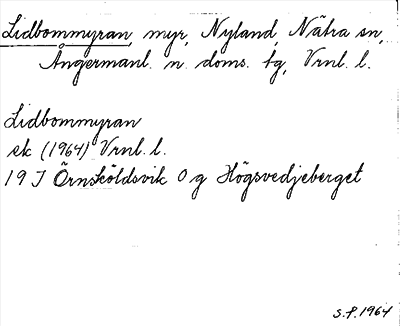 Lidbommyran, myr, Nyland, Nätra sn,
Ångermanl. n. doms. tg, Vrnl. l.
Lidbommyran
ek (1964) Vrnl. l.
19 J Örnsköldsvik 0 g Högsvedjeberget
S.P. 1964